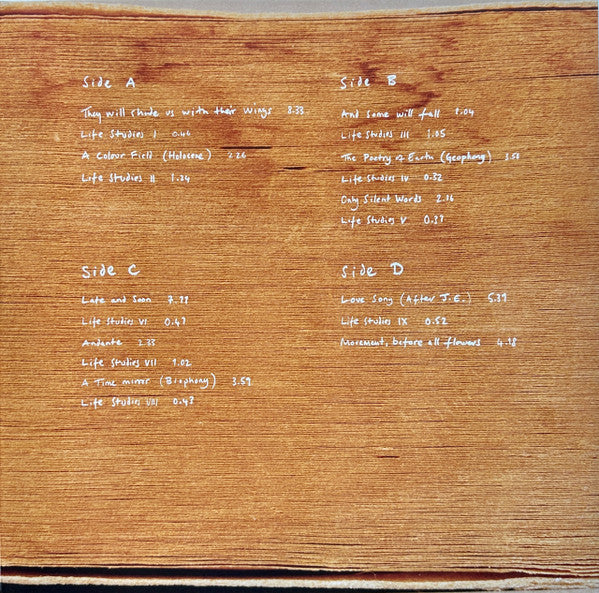 Side A
They will shade us with their wings 8.33
Life Studies I 0.44
A Colour Field (Holocene) 2.26
Life Studies II 1.24
Side B
And Some will fall 1.04
Life Studies III 1.05
The Poetry of Earth (Geophony) 3.58
Life Studies IV 0.32
Only Silent Words 2.16
Life Studies V 0.27
Side C
Late and Soon 7.28
Life Studies VI 0.47
Andante 2.33
Life Studies VII 1.02
A Time mirror (Biophony) 3.59
Life Studies VIII 0.48
Side D
Love Song (After J.E.) 5.39
Life Studies IX 0.52
Movement, before all flowers 4.18